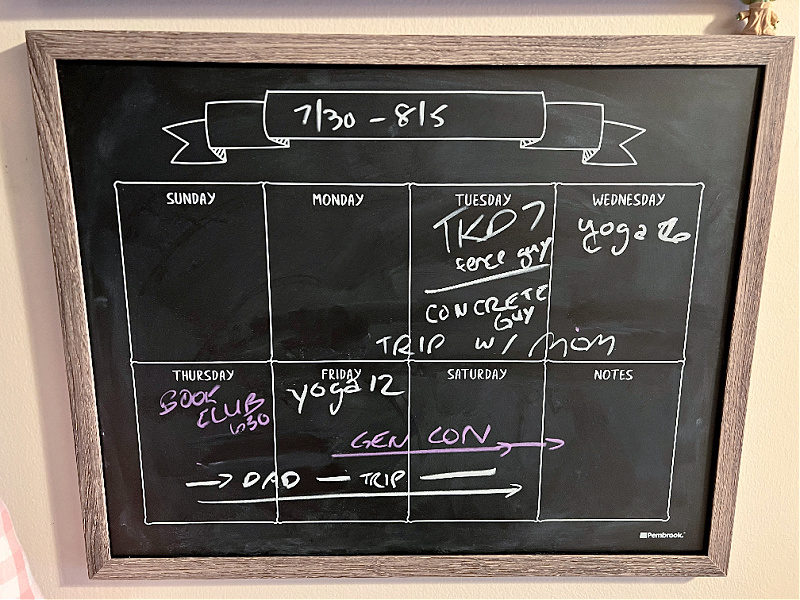 7/30 - 8/5
SUNDAY
MONDAY
TUESDAY
TKD 7
fence guy
CONCRETE
GUY
WEDNESDAY
yoga 6
TRIP w/ MOM
THURSDAY
BOOK
CLUB
630
FRIDAY
yoga 12
SATURDAY
NOTES
GEN CON
DAD — TRIP —
Pembrook